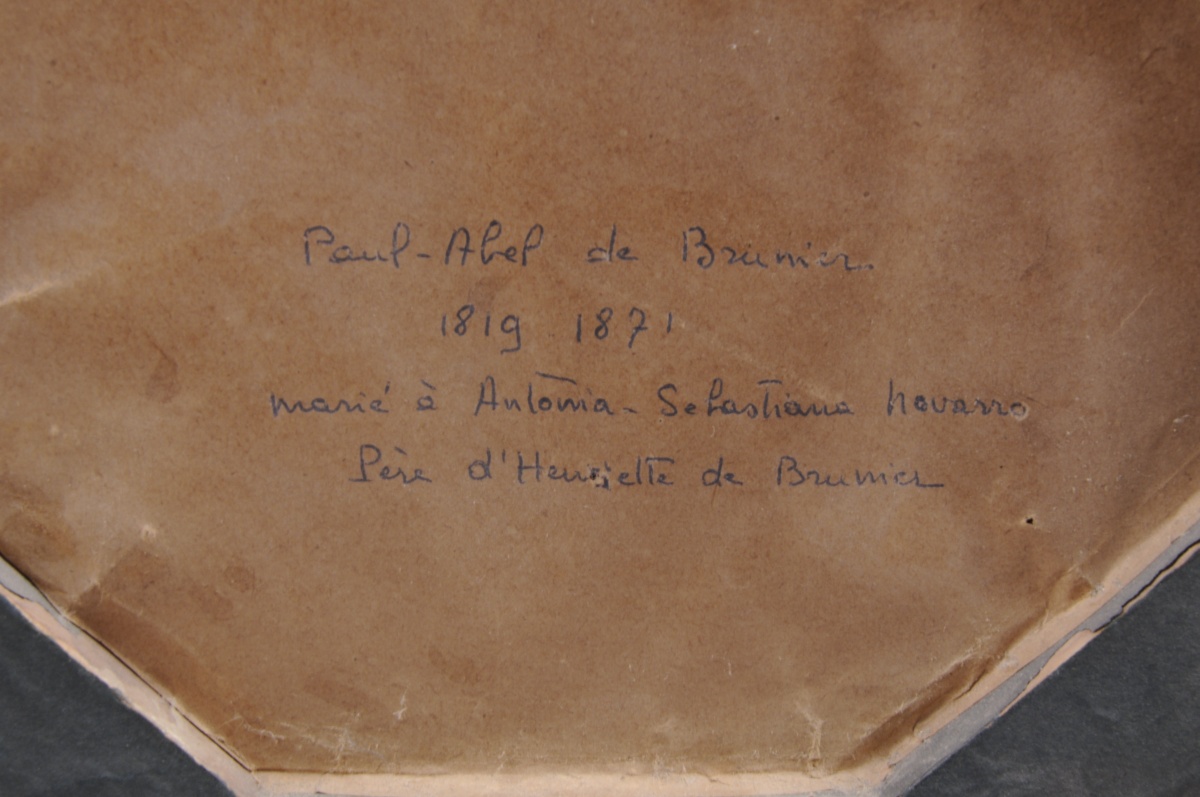 Paul-Abel de Brunier.
1819 1871
marié à Antonia-Sebastiana Navarro
Père d'Henriette de Brunier